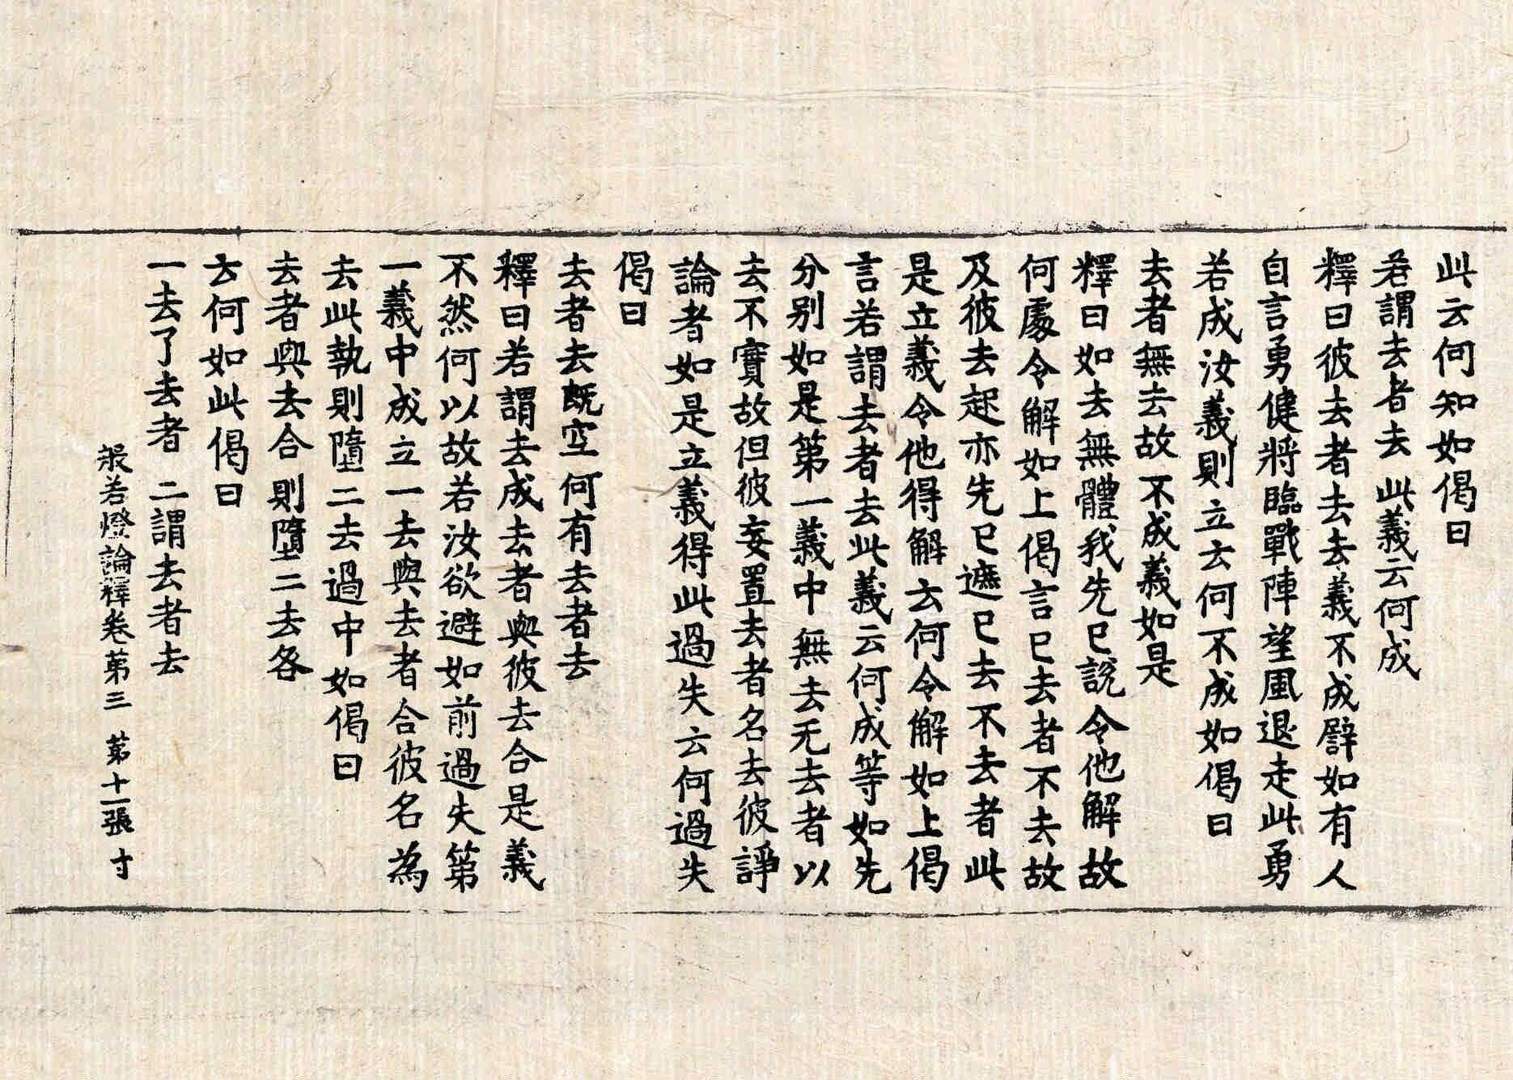 此云何知如偈曰
若謂去者去此義云何成
釋曰彼去者去去義不成譬如有人
自言勇健將臨戰陣望風退走此勇
若成汝義則立云何不成如偈曰
去者無去故不成義如是
釋曰如去無體我先已說令他解故
何處令解如上偈言已去者不去故
及彼去起亦先已遮已去不去者此
是立義令他得解云何令解如上偈
言若謂去者去此義云何成等如先
分别如是第一義中無去无去者以
去不實故但彼妄置去者名去彼諍
論者如是立義得此過失云何過失
偈曰
去者去既空何有去者去
釋曰若謂去成去者與彼去合是義
不然何以故若汝欲避如前過失第
一義中成立一去與去者合彼名為
去此執則墮二去過中如偈曰
去者與去合則墮二去咎
云何如此偈曰
一去了去者 二謂去者去
般若燈論釋卷第三 第十一張 寸